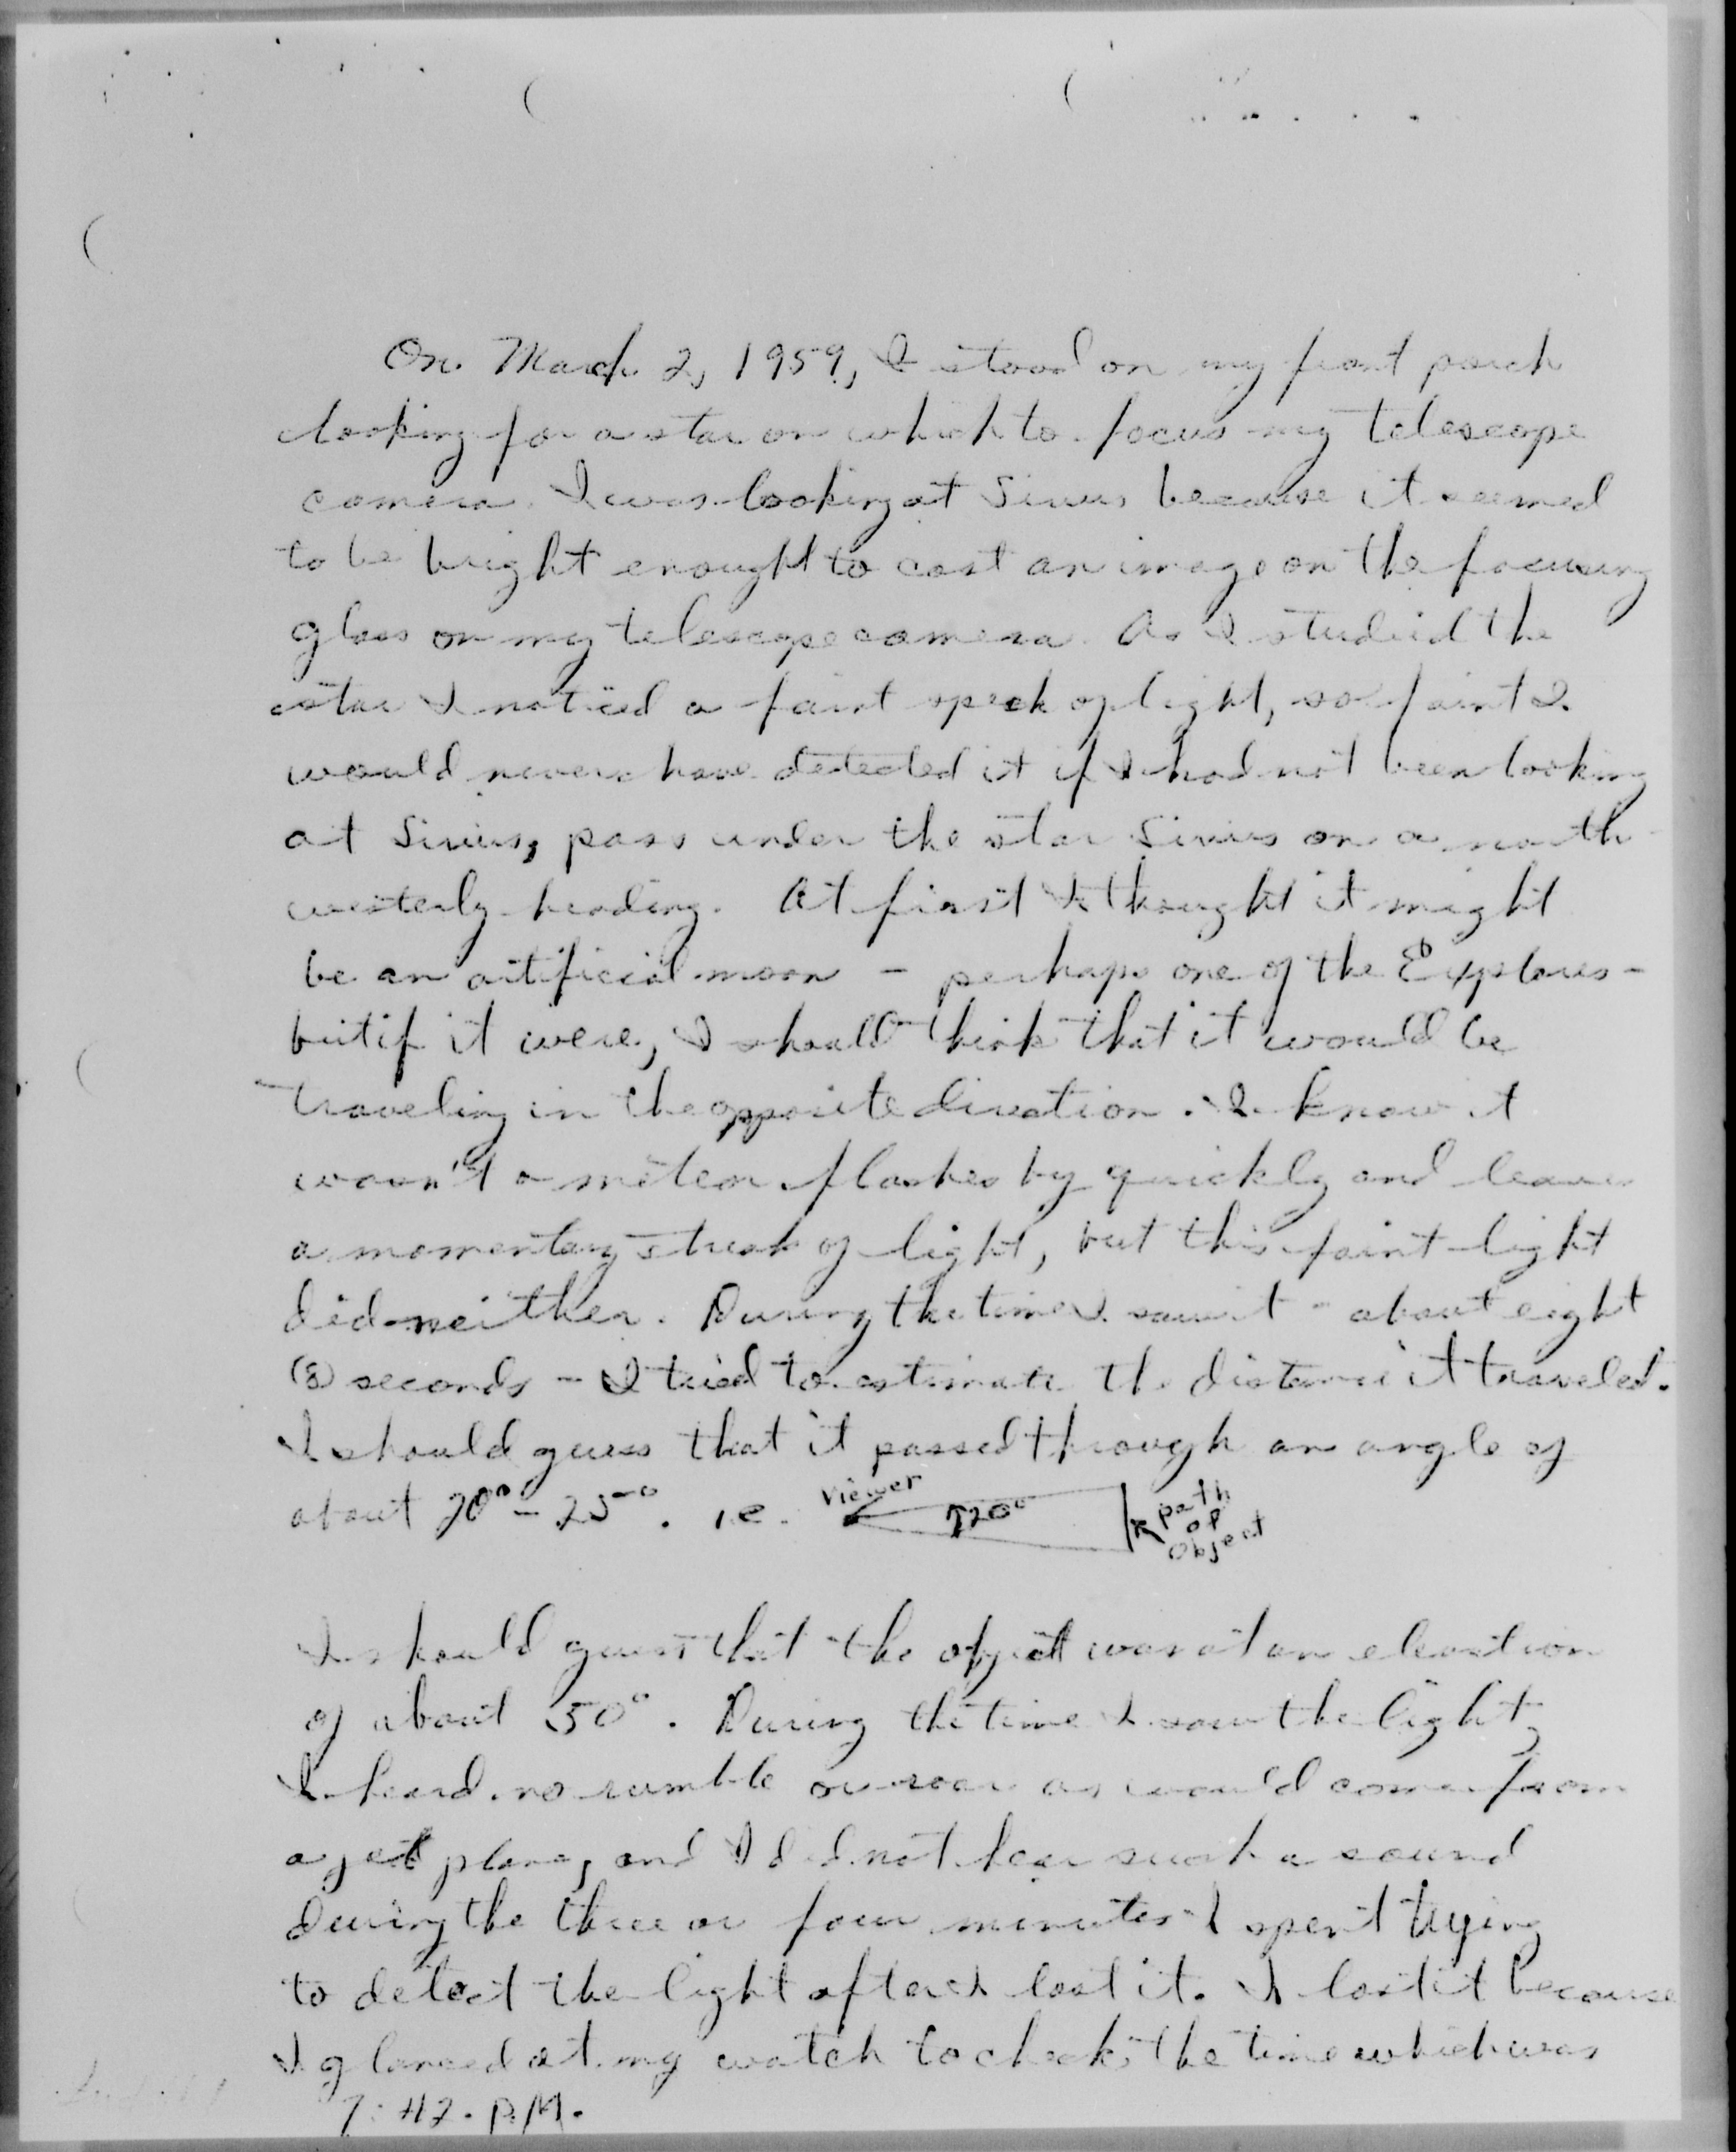 On March 2, 1959, I stood on my front porch
looking for a star on which to focus my telescope
camera. I was looking at Sirius because it seemed
to be bright enought to cast an image on the focusing
glass on my telescope camera. As I studied the
star I noticed a faint speck of light, so faint I
would never have detected it if I had not been looking
at Sirius, pass under the star Sirius on a north
westerly heading. At first I thought it might
be an artificial moon - perhaps one of the Explorers -
but if it were, I should think that it would be
traveling in the opposite direction. I know it
wasn't a meteor flashes by quickly and leaves
a momentary streak of light, but this faint light
did neither. During the time I saw it - about eight
(8) seconds - I tried to estimate the distance it traveled.
I should guess that it passed through an angle of
about 20° - 25°. i.e. Viewer 20° path of object
I should guess that the object was at an elevation
of about 50°. During the time I saw the light,
I heard no rumble or roar as would come from
a jet plane, and I did not hear such a sound
during the three or four minutes I spent trying
to detect the light after I lost it. I lost it because
I glanced at my watch to check the time which was
7:42 P.M.